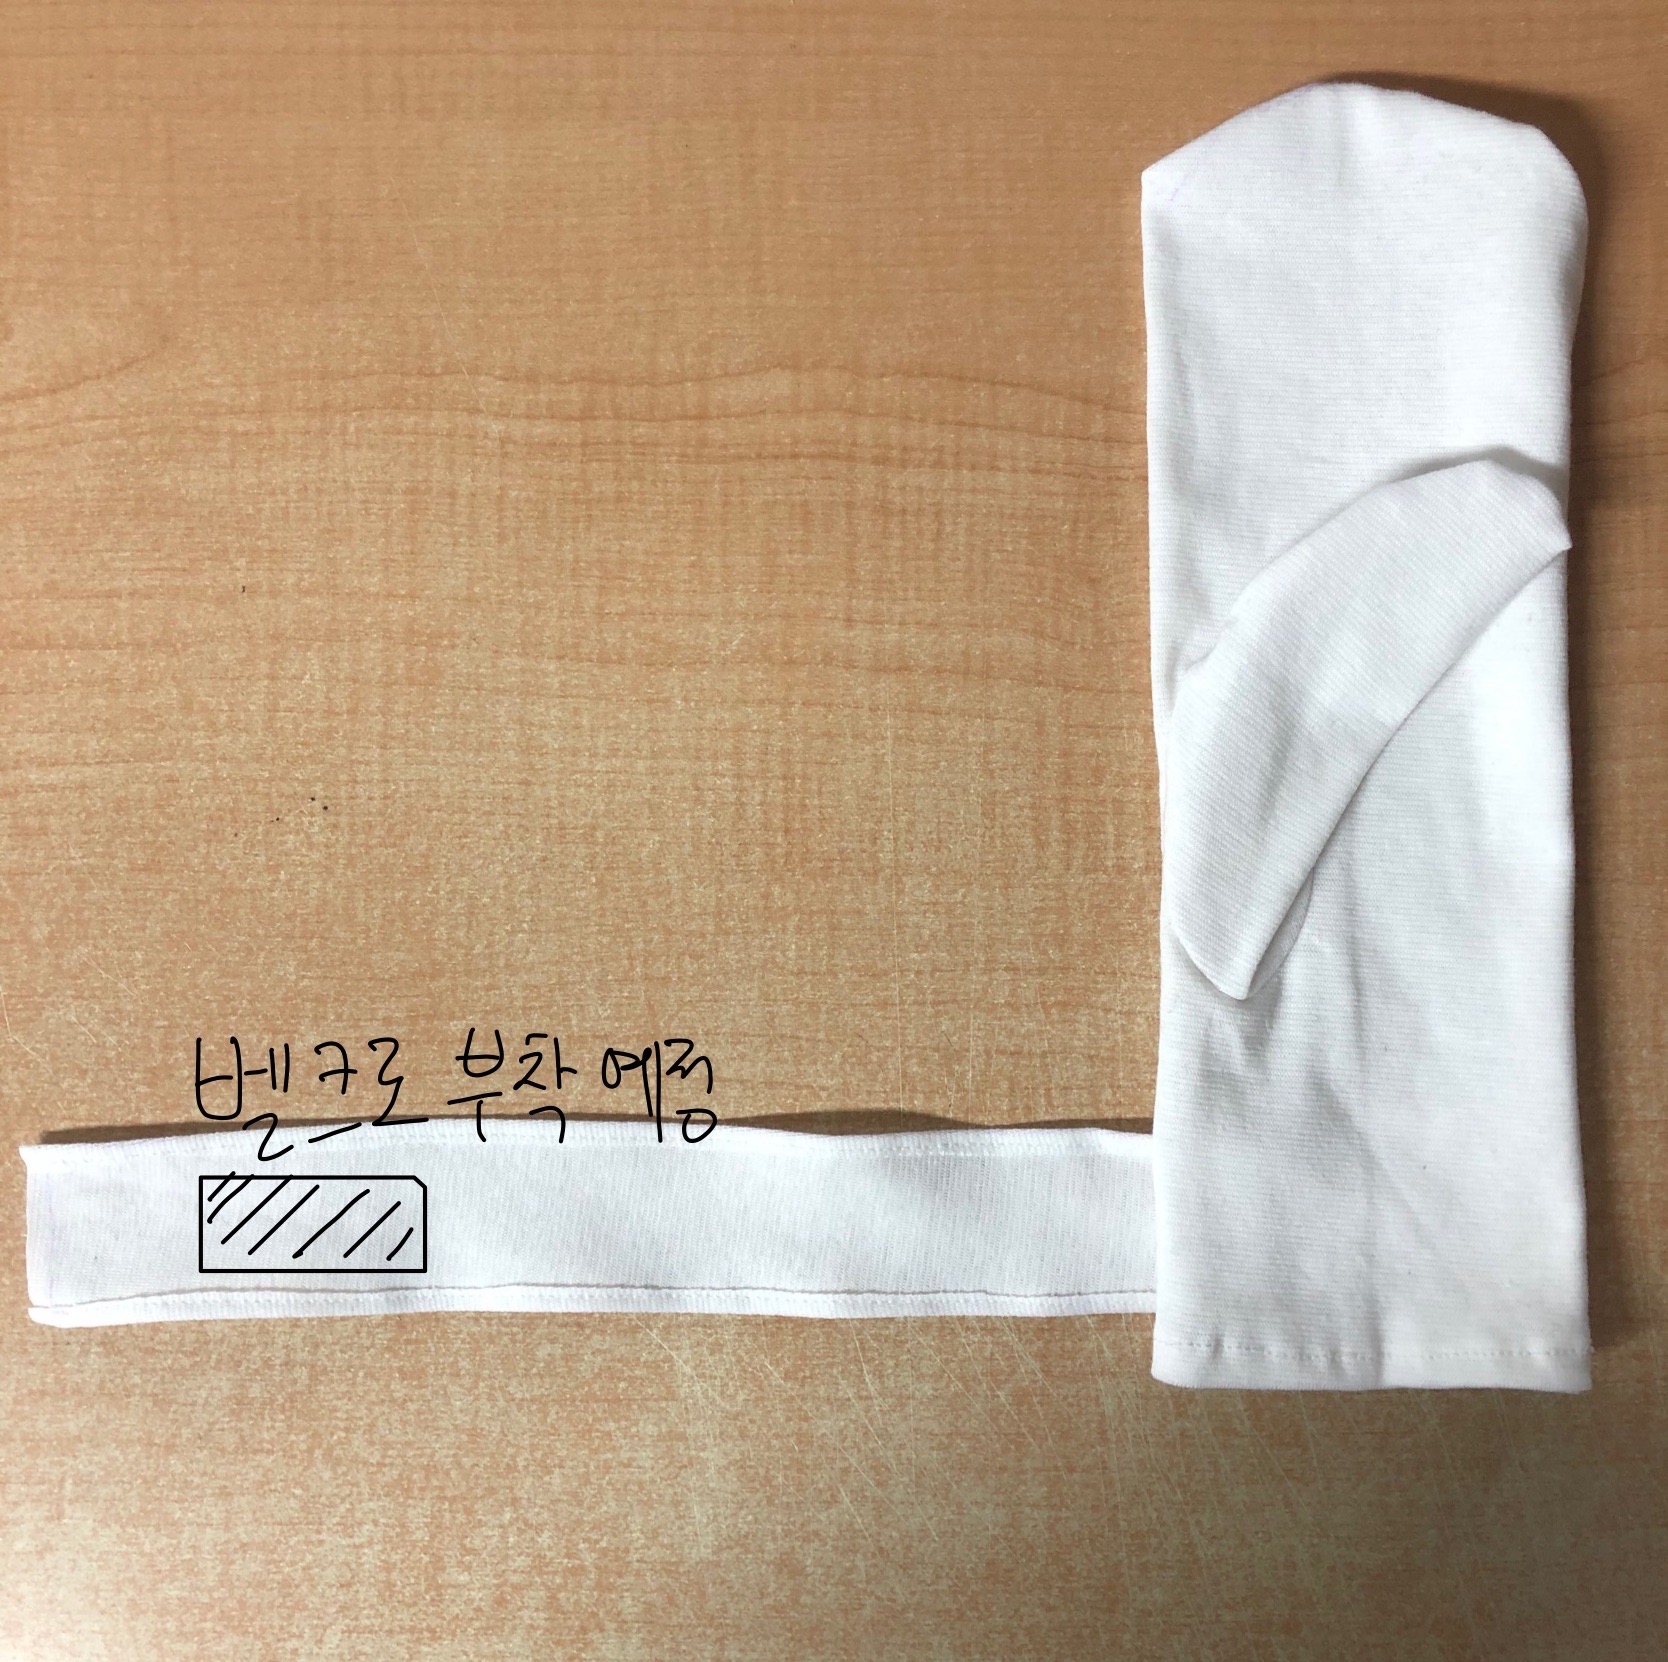 벨크로 부착 예정